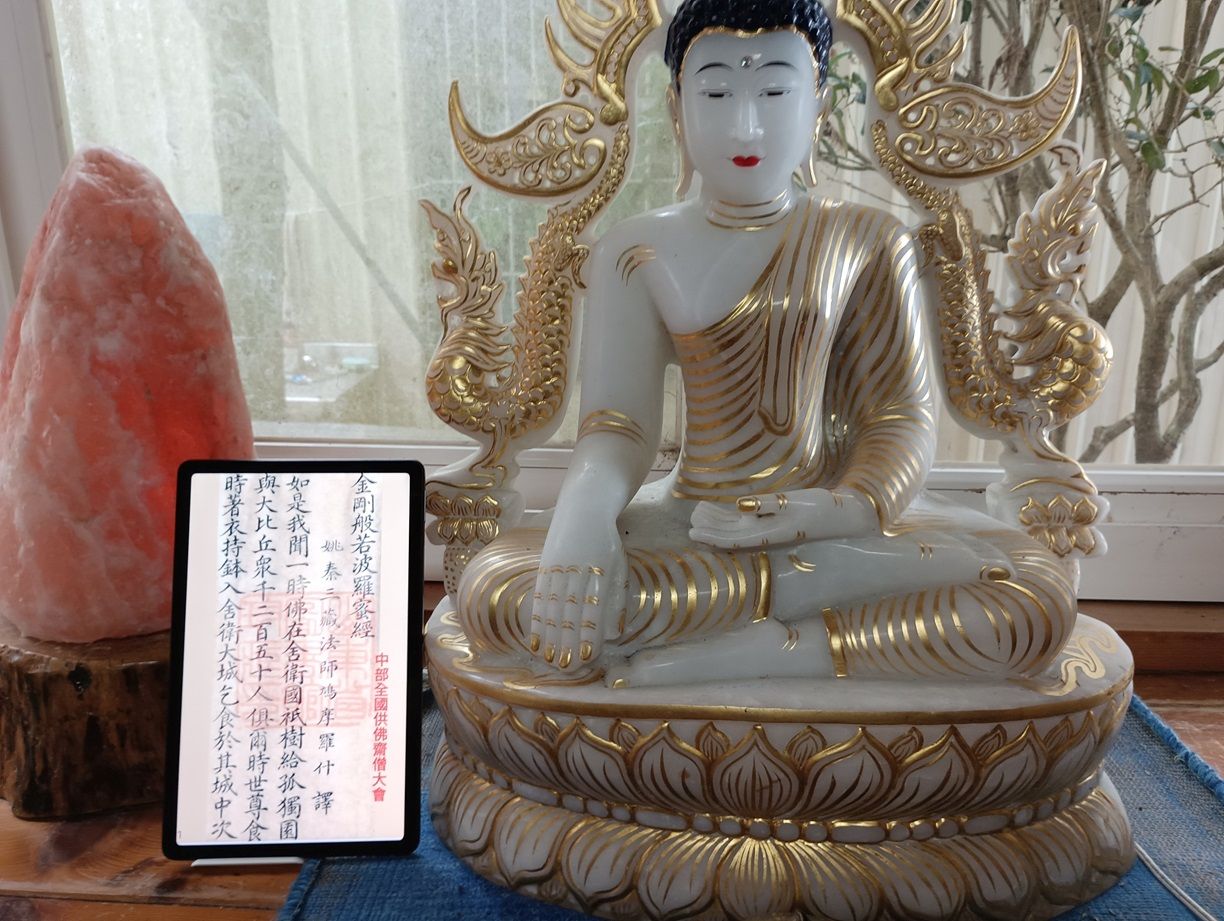 中部全國供佛齋僧大會
金剛般若波羅蜜經
姚秦三藏法師鳩摩羅什 譯
如是我聞一時佛在舍衛國祇樹給孤獨園
與大比丘眾千二百五十人俱爾時世尊食
時著衣持鉢入舍衛大城乞食於其城中次